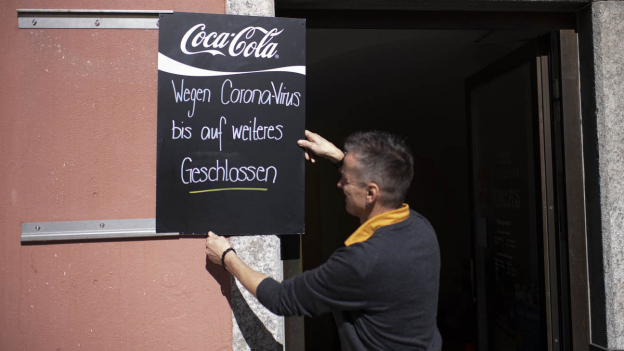 Coca-Cola
Wegen Corona-Virus
bis auf weiteres
Geschlossen